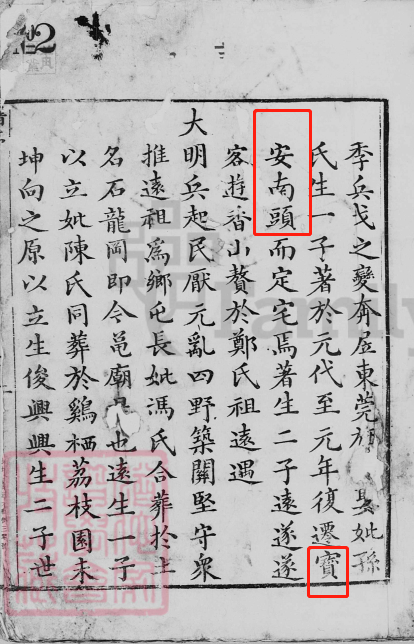 季兵戈之變奔居東莞 妣孫
氏生一子著於元代至元年復遷寶
安南頭而定宅焉著生二子遠遂遂
客遊香小贅於鄭氏祖遠遇
大明兵起民厭元亂四野築關堅守眾
推遠祖爲鄉屯長妣馮氏合葬於土
名石龍岡即今邑廟 也遠生一子
以立妣陳氏同葬於鷄栖荔枝園未
坤向之原以立生俊興興生二子世
2